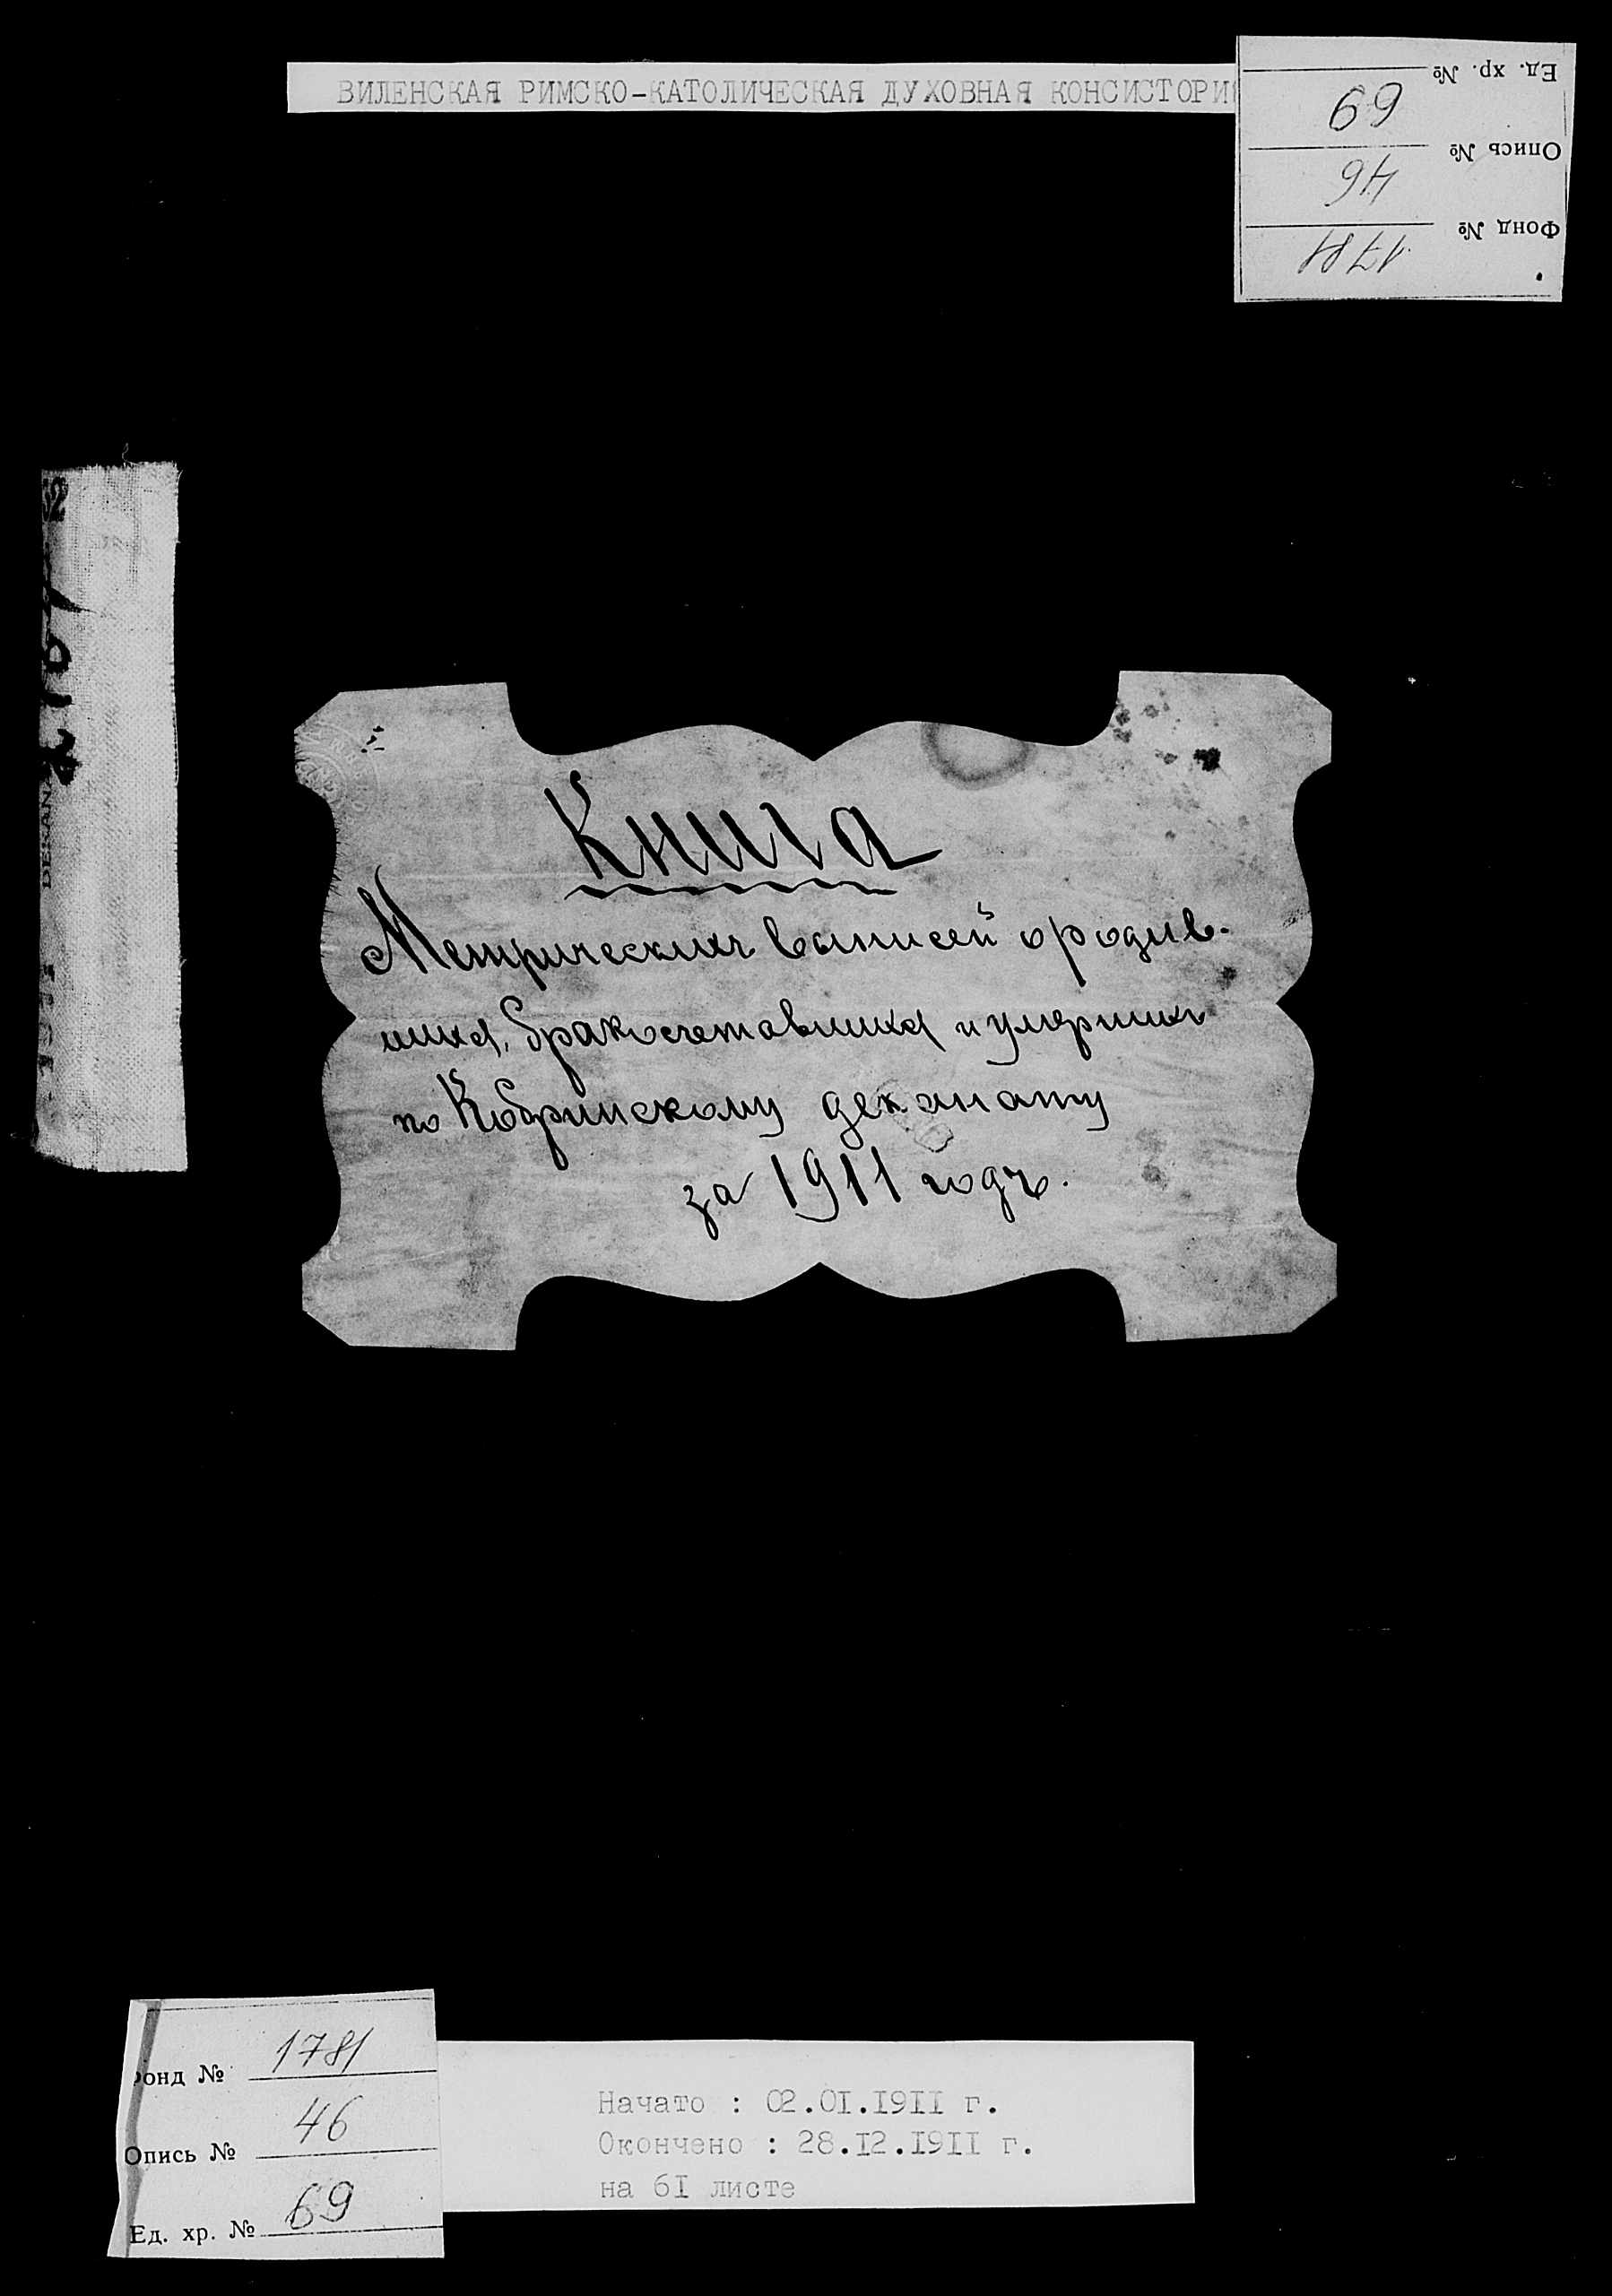 ВИЛЕНСКАЯ РИМСКО-КАТОЛИЧЕСКАЯ ДУХОВНАЯ КОНСИСТОРИЯ
Фонд № 1781
Опись № 46
Ед. хр. № 69
Книга
Метрическихъ выписей о родив-
шихся, бракосочетавшихся и умершихъ
по Кобринскому деканату
за 1911 годъ.
Фонд № 1781
Опись № 46
Ед. хр. № 69
Начато : 02.01.1911 г.
Окончено : 28.12.1911 г.
на 61 листе